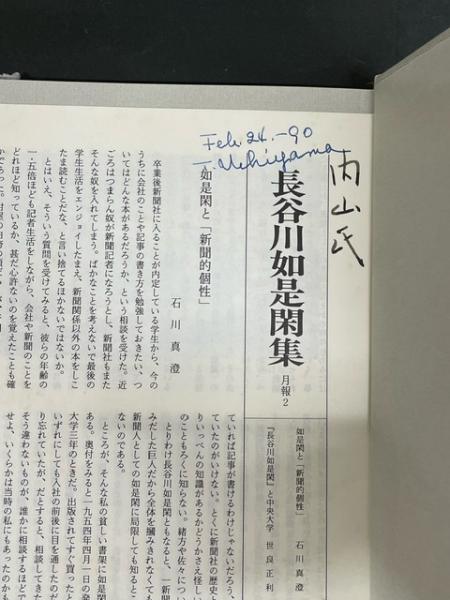 Feb 24.-90
T. Uchiyama
内山氏
長谷川如是閑集
月報2
如是閑と「新聞的個性」 石川真澄
『長谷川如是閑』と中央大学 世良正利
如是閑と「新聞的個性」
石川真澄
卒業後新聞社に入ることが内定している学生から、今の
うちに会社のことや記事の書き方を勉強しておきたい、つ
いてはどんな本があるだろうか、という相談を受けた。近
ごろはつまらん奴が新聞記者になろうとし、新聞社もまた
そんな奴を入れてしまう。ばかなことを考えないで最後の
学生生活をエンジョイしたまえ、新聞関係以外の本をしこ
たま読むことだな、と言い捨てるほかないではないか。
とはいえ、そういう質問を受けてみると、彼らの年齢の
一・五倍ほども記者生活をしながら、会社や新聞のことを
どれほど知っているか、甚だ心許ないのを覚えたことも確
ていれば記事が書けるわけじゃないだろう、
ていたのがいけない。とくに新聞の歴史と
りいっぺんの知識があるかどうかさえ怪し
のこともろくに知らない。緒方や佐々につい
とりわけ長谷川如是閑ともなると、一新聞
みだした巨人だから全体を摑みきれなくても
新聞人としての如是閑に局限しても知ると
ないのである。
ところが、そんな私の貧しい書架に如是閑
ある。奥付をみると一九五四年四月一日の発
大学三年のときだ。出版されてすぐ買ったと
いずれにしても入社の前後に目を通したのだ
り忘れていたが、だとすると、相談してきた
そう違わないものが、誰かに相談するほどで
せよ、いくらかは当時の私にもあったのかも